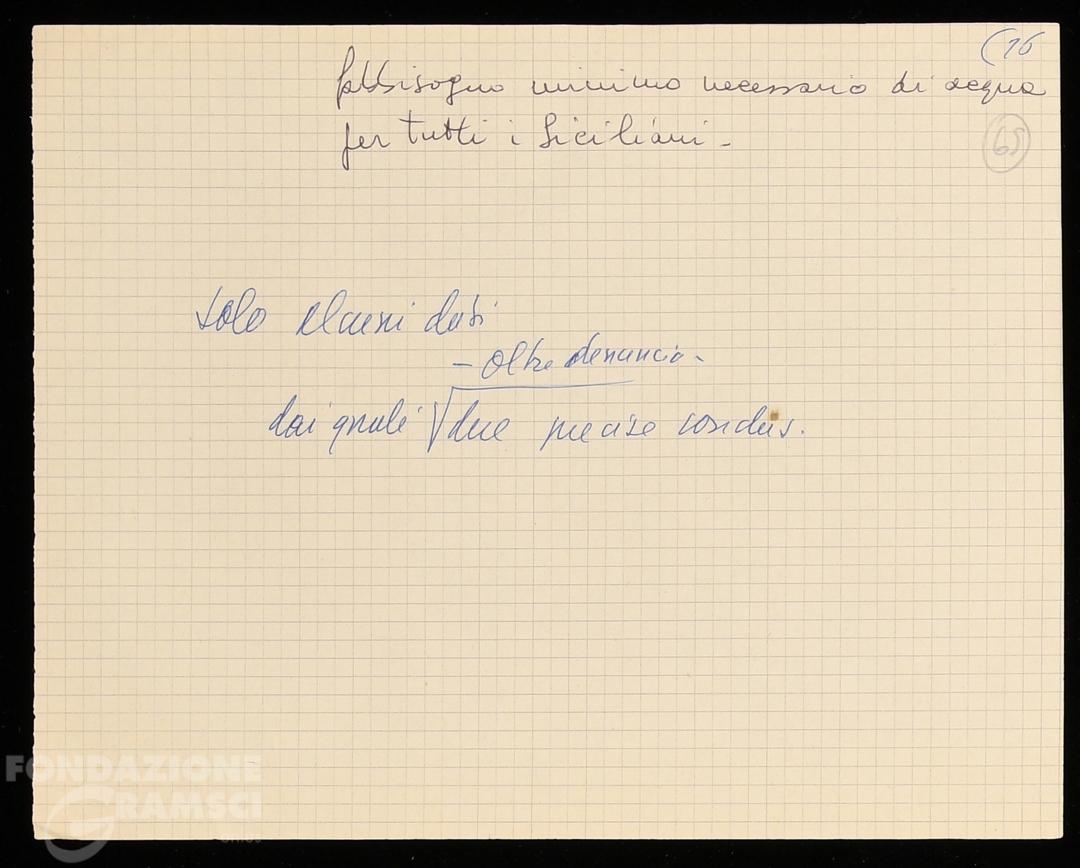 (16
fabbisogno minimo necessario di acqua
per tutti i Siciliani -
65
solo alcuni dati
- oltre denuncia -
dai quali due precise conclus.
FONDAZIONE
GRAMSCI
ONLUS